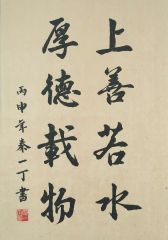 上善若水
厚德載物
丙申年秦一丁書